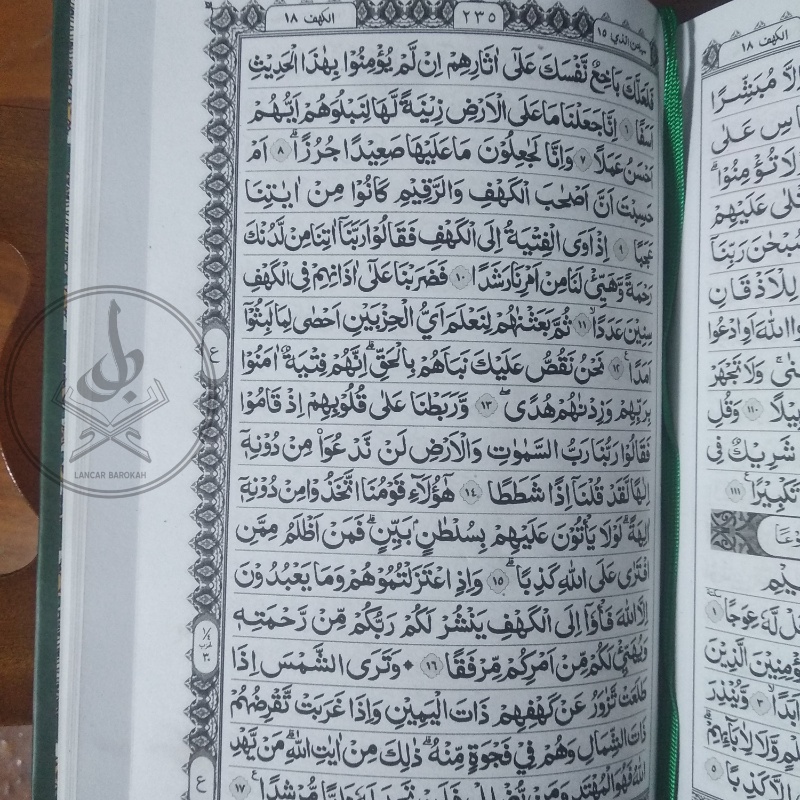 الكهف ١٨
٢٣٥
سبحن الذي ١٥
فَلَعَلَّكَ بَاخِعٌ نَّفْسَكَ عَلٰٓى اٰثَارِهِمْ اِنْ لَّمْ يُؤْمِنُوْا بِهٰذَا الْحَدِيْثِ
اَسَفًا ٦ اِنَّا جَعَلْنَا مَا عَلَى الْاَرْضِ زِيْنَةً لَّهَا لِنَبْلُوَهُمْ اَيُّهُمْ
اَحْسَنُ عَمَلًا ٧ وَاِنَّا لَجٰعِلُوْنَ مَا عَلَيْهَا صَعِيْدًا جُرُزًا ۗ ٨ اَمْ
حَسِبْتَ اَنَّ اَصْحٰبَ الْكَهْفِ وَالرَّقِيْمِ كَانُوْا مِنْ اٰيٰتِنَا
عَجَبًا ٩ اِذْ اَوَى الْفِتْيَةُ اِلَى الْكَهْفِ فَقَالُوْا رَبَّنَآ اٰتِنَا مِنْ لَّدُنْكَ
رَحْمَةً وَّهَيِّئْ لَنَا مِنْ اَمْرِنَا رَشَدًا ١٠ فَضَرَبْنَا عَلٰٓى اٰذَانِهِمْ فِى الْكَهْفِ
سِنِيْنَ عَدَدًا ۙ ١١ ثُمَّ بَعَثْنٰهُمْ لِنَعْلَمَ اَيُّ الْحِزْبَيْنِ اَحْصٰى لِمَا لَبِثُوْٓا
اَمَدًا ࣖ ١٢ نَحْنُ نَقُصُّ عَلَيْكَ نَبَاَهُمْ بِالْحَقِّۗ اِنَّهُمْ فِتْيَةٌ اٰمَنُوْا
بِرَبِّهِمْ وَزِدْنٰهُمْ هُدًىۖ ١٣ وَّرَبَطْنَا عَلٰى قُلُوْبِهِمْ اِذْ قَامُوْا
فَقَالُوْا رَبُّنَا رَبُّ السَّمٰوٰتِ وَالْاَرْضِ لَنْ نَّدْعُوَا۟ مِنْ دُوْنِهٖٓ
اِلٰهًا لَّقَدْ قُلْنَآ اِذًا شَطَطًا ١٤ هٰٓؤُلَاۤءِ قَوْمُنَا اتَّخَذُوْا مِنْ دُوْنِهٖٓ
اٰلِهَةًۗ لَوْلَا يَأْتُوْنَ عَلَيْهِمْ بِسُلْطٰنٍۢ بَيِّنٍۗ فَمَنْ اَظْلَمُ مِمَّنِ
افْتَرٰى عَلَى اللّٰهِ كَذِبًاۗ ١٥ وَاِذِ اعْتَزَلْتُمُوْهُمْ وَمَا يَعْبُدُوْنَ
اِلَّا اللّٰهَ فَأْوٗٓا اِلَى الْكَهْفِ يَنْشُرْ لَكُمْ رَبُّكُمْ مِّنْ رَّحْمَتِهٖ
وَيُهَيِّئْ لَكُمْ مِّنْ اَمْرِكُمْ مِّرْفَقًا ١٦ ۞ وَتَرَى الشَّمْسَ اِذَا
طَلَعَتْ تَّزٰوَرُ عَنْ كَهْفِهِمْ ذَاتَ الْيَمِيْنِ وَاِذَا غَرَبَتْ تَّقْرِضُهُمْ
ذَاتَ الشِّمَالِ وَهُمْ فِيْ فَجْوَةٍ مِّنْهُۗ ذٰلِكَ مِنْ اٰيٰتِ اللّٰهِۗ مَنْ يَّهْدِ
اللّٰهُ فَهُوَ الْمُهْتَدِ وَمَنْ يُّضْلِلْ فَلَنْ تَجِدَ لَهٗ وَلِيًّا مُّرْشِدًا ࣖ ١٧
ع
ع
LANCAR BAROKAH
الكهف ١٨
اِلَّا مُبَشِّرًا
عَلَى
لَا تُؤْمِنُوْاۗ
عَلَيْهِمْ
سُبْحٰنَ رَبِّنَآ
لِلْاَذْقَانِ
اللّٰهَ اَوِ ادْعُوا
وَلَا تَجْهَرْ
١١٠ وَقُلِ
شَرِيْكٌ فِى
تَكْبِيْرًا ࣖ ١١١
لَّهٗ عِوَجًا ۜ ١
الَّذِيْنَ
اَبَدًا ۙ ٣ وَّيُنْذِرَ
وَّلَا لِاٰبَاۤىِٕهِمْۗ
اِلَّا كَذِبًا ٥